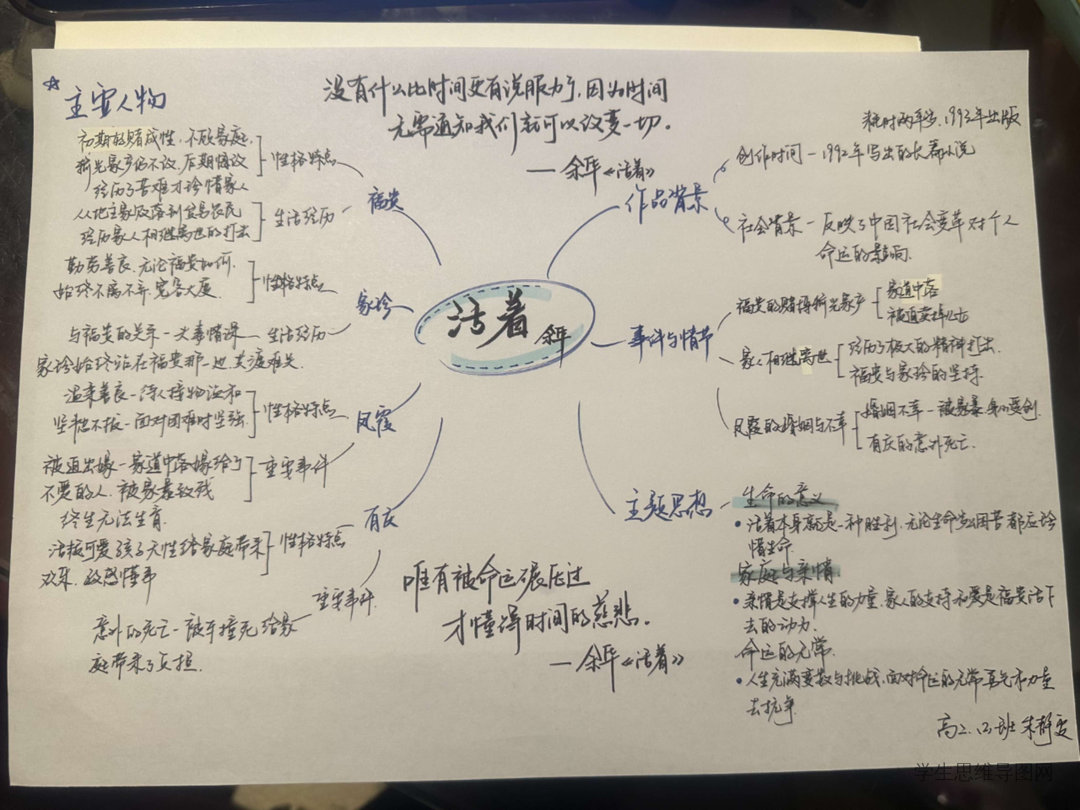 主要人物
没有什么比时间更有说服力了,因为时间
无需通知我们就可以改变一切。
—余华《活着》
初期嗜赌成性,不顾家庭,
输光家产仍不改,后期悔改
经历了苦难才珍惜家人
性格特点
从地主家败落到贫易农民
经历家人相继离世的打击
生活经历
福贵
勤劳善良,无论福贵如何,
始终不离不弃,宽容大度
性格特点
与福贵的关系—夫妻情深—生活经历
家珍始终站在福贵那一边,共渡难关.
家珍
温柔善良—待人接物温和
坚韧不拔—面对困难时坚强
性格特点
被迫出嫁—家道中落嫁给了
不爱的人,被家暴致残
终生无法生育.
重要事件
凤霞
活拔可爱,孩子天性给家庭带来
欢乐,敏感懂事
性格特点
有庆
重要事件
意外的死亡—被车撞死给家
庭带来了负担.
活着
余华
作品背景
耗时两年多,1993年出版
创作时间—1992年写出的长篇小说
社会背景—反映了中国社会变革对个人
命运的影响.
事件与情节
福贵的赌博输光家产
家道中落
被迫卖掉
家人相继离世
经历了极大的精神打击.
福贵与家珍的坚持.
凤霞的婚姻与不幸
婚姻不幸—被家暴身心受创.
有庆的意外死亡.
主题思想
生命的意义
•活着本身就是一种胜利,无论生命多么困苦都应珍
惜生命
家庭与亲情
•亲情是支撑人生的力量,家人的支持和爱是福贵活下
去的动力.
命运的无常
•人生充满变数与挑战,面对命运的无常勇气和力量
去抗争
唯有被命运碾压过
才懂得时间的慈悲.
—余华《活着》
高二.
学生思维导图网